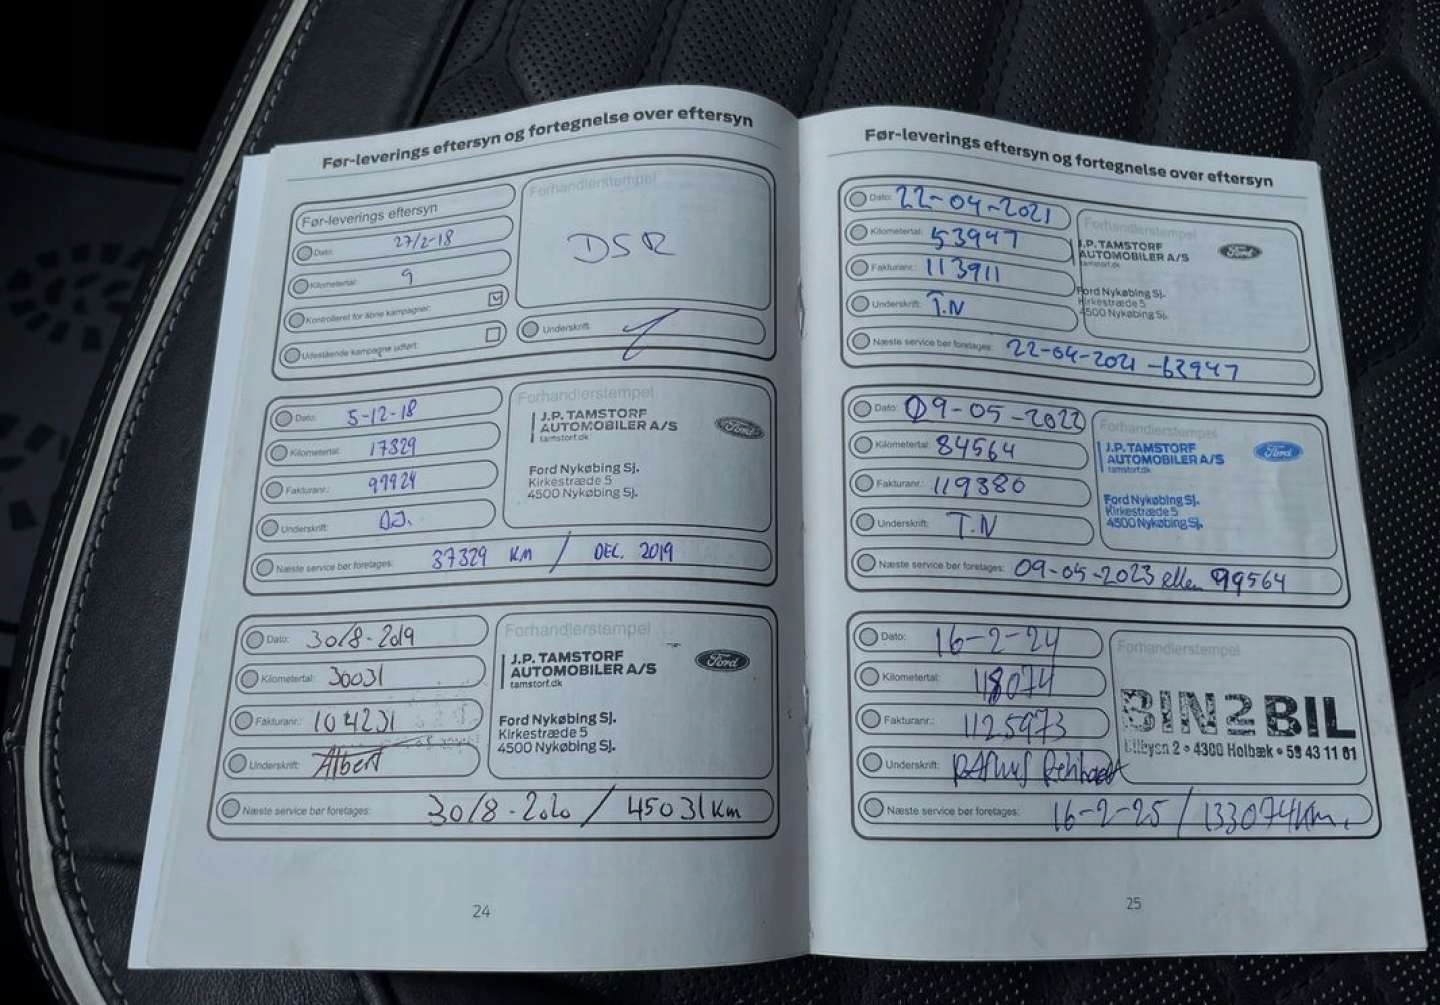 Før-leverings eftersyn og fortegnelse over eftersyn
Før-leverings eftersyn
Dato: 27/2-18
Kilometertal: 9
Kontrolleret for åbne kampagner:
Udestående kampagne udført:
Forhandlerstempel
DSR
Underskrift:
Dato: 5-12-18
Kilometertal: 17329
Fakturanr.: 99924
Underskrift:
Næste service bør foretages: 37329 KM / DEC. 2019
Forhandlerstempel
J.P. TAMSTORF
AUTOMOBILER A/S
tamstorf.dk
Ford
Ford Nykøbing Sj.
Kirkestræde 5
4500 Nykøbing Sj.
Dato: 30/8-2019
Kilometertal: 30031
Fakturanr.: 104231
Underskrift: Albert
Næste service bør foretages: 30/8-2020 / 45031 Km
Forhandlerstempel
J.P. TAMSTORF
AUTOMOBILER A/S
tamstorf.dk
Ford
Ford Nykøbing Sj.
Kirkestræde 5
4500 Nykøbing Sj.
24
Før-leverings eftersyn og fortegnelse over eftersyn
Dato: 22-04-2021
Kilometertal: 53947
Fakturanr.: 113911
Underskrift: T.N
Næste service bør foretages: 22-04-2021 - 63947
Forhandlerstempel
J.P. TAMSTORF
AUTOMOBILER A/S
tamstorf.dk
Ford
Ford Nykøbing Sj.
Kirkestræde 5
4500 Nykøbing Sj.
Dato: 09-05-2022
Kilometertal: 84564
Fakturanr.: 119386
Underskrift: T.N
Næste service bør foretages: 09-05-2023 eller 99564
Forhandlerstempel
J.P. TAMSTORF
AUTOMOBILER A/S
tamstorf.dk
Ford
Ford Nykøbing Sj.
Kirkestræde 5
4500 Nykøbing Sj.
Dato: 16-2-24
Kilometertal: 118074
Fakturanr.: 1125973
Underskrift:
Næste service bør foretages: 16-2-25 / 133074 Km.
Forhandlerstempel
BIN2BIL
2 • 4300 Holbæk • 59 43 11 61
25